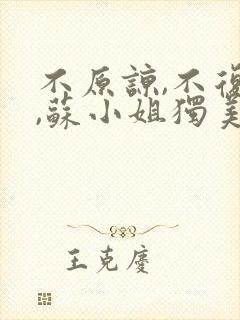 不原諒,不復
,蘇小姐獨美
王克慶